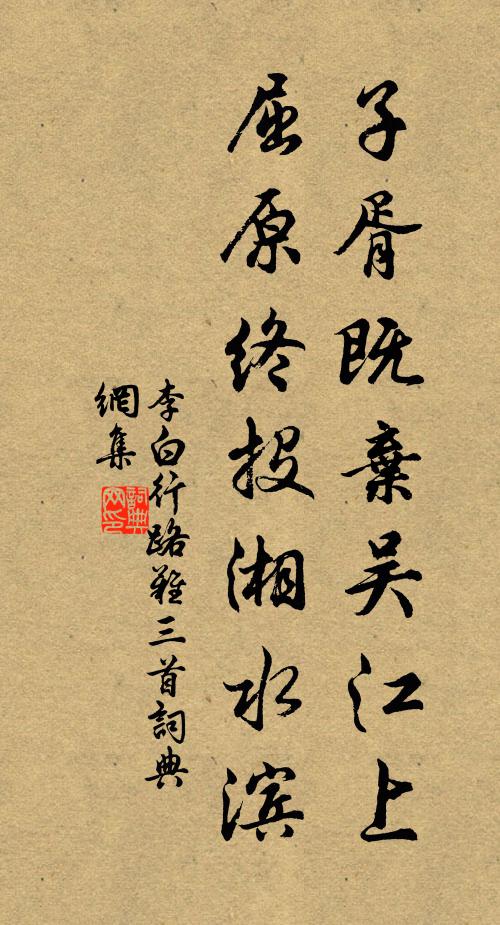 子胥既棄吴江上
屈原终投湘水滨
李白行路難三首詞典
網集
詞典
网印